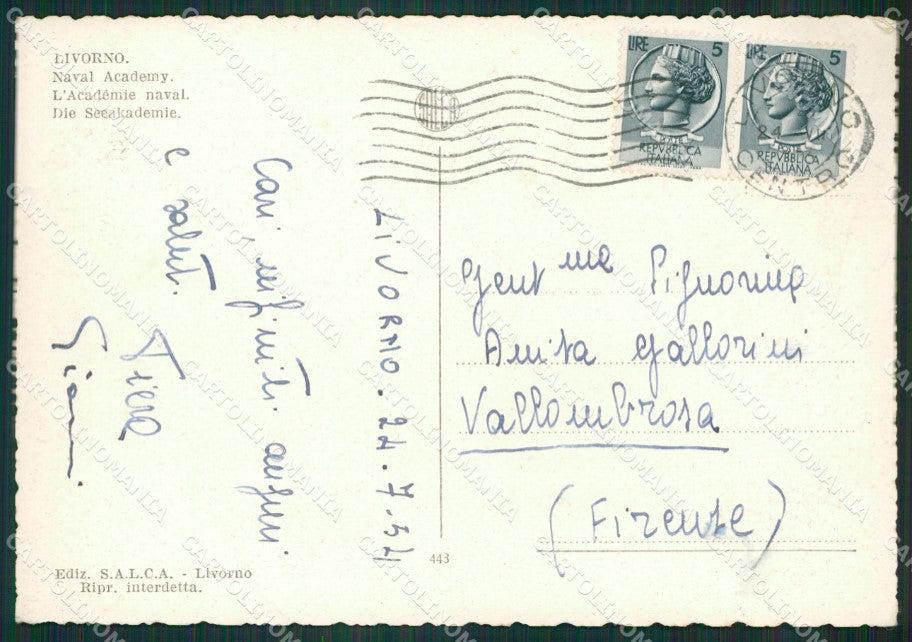 LIVORNO.
Naval Academy.
L'Académie naval.
Die Seeakademie.
LIRE 5
REPVBBLICA
ITALIANA
LIRE 5
POSTE
REPVBBLICA
ITALIANA
LIVORNO
24
CENTRO
LIVORNO. 24.7.54
Cari, infiniti. auguri
e saluti.
Piera
Gent.me Signorine
Anita Gallorini
Vallombrosa
(Firenze)
443
Ediz. S.A.L.C.A. - Livorno
Ripr. interdetta.
CARTOLINOMANIA